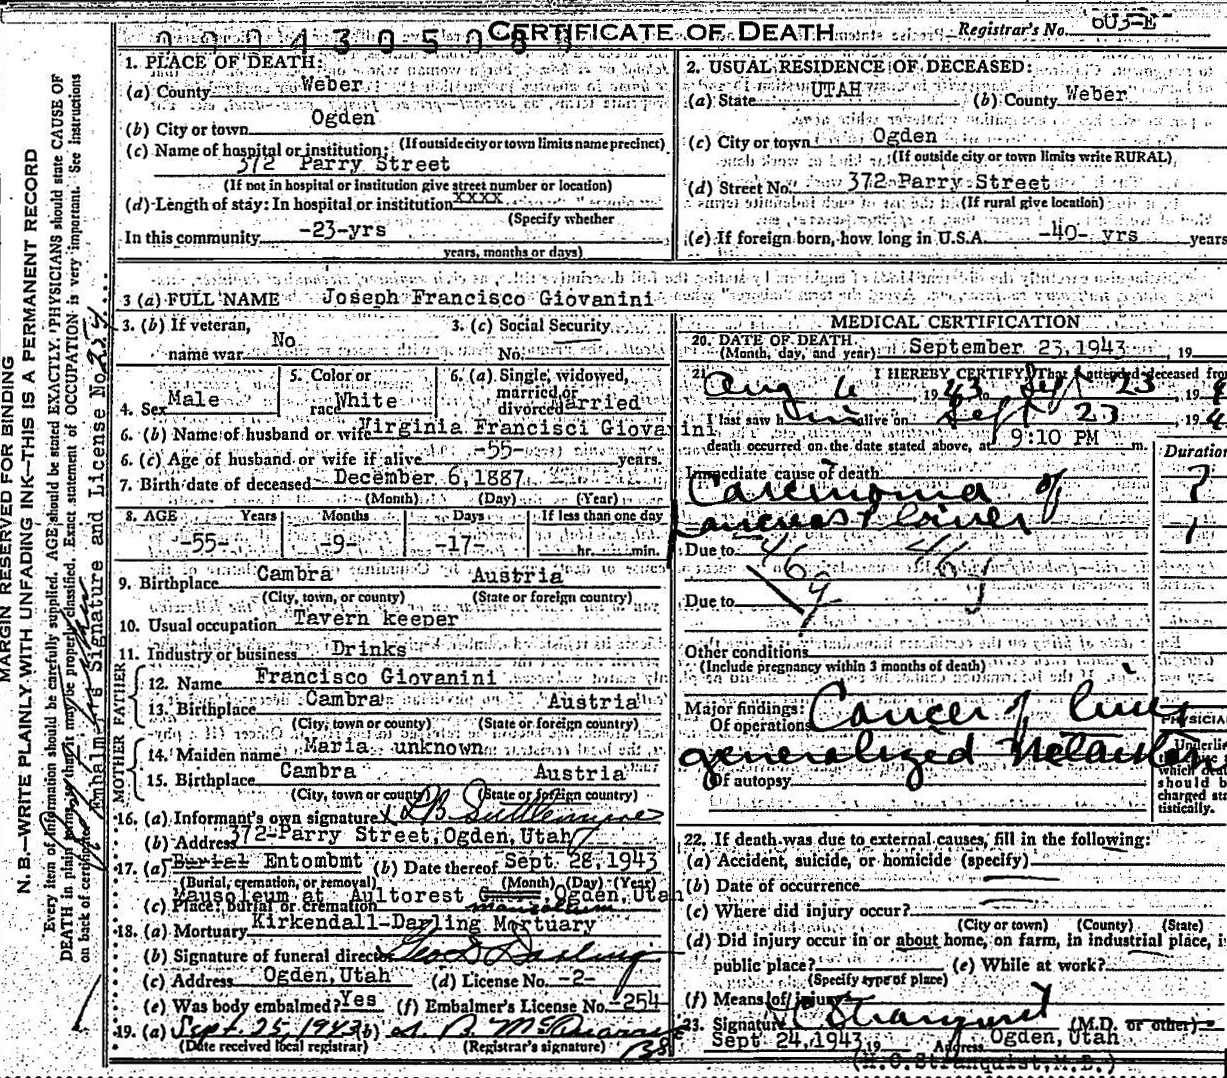 CERTIFICATE OF DEATH
Registrar's No.
1. PLACE OF DEATH:
(a) County Weber
(b) City or town Ogden
(If outside city or town limits name precinct)
(c) Name of hospital or institution:
372 Parry Street
(If not in hospital or institution give street number or location)
(d) Length of stay: In hospital or institution xxxx
(Specify whether
In this community -23-yrs
years, months or days)
2. USUAL RESIDENCE OF DECEASED:
(a) State UTAH (b) County Weber
(c) City or town Ogden
(If outside city or town limits write RURAL)
(d) Street No. 372 Parry Street
(If rural give location)
(e) If foreign born, how long in U.S.A. -40- yrs years
3 (a) FULL NAME Joseph Francisco Giovanini
3. (b) If veteran, name war No
3. (c) Social Security No.
4. Sex Male
5. Color or race White
6. (a) Single, widowed, married or divorced Married
6. (b) Name of husband or wife Virginia Francisci Giovanini
6. (c) Age of husband or wife if alive -55- years.
7. Birth date of deceased December 6, 1887
(Month) (Day) (Year)
8. AGE Years Months Days If less than one day
-55- -9- -17- hr. min.
9. Birthplace Cambra Austria
(City, town, or county) (State or foreign country)
10. Usual occupation Tavern keeper
11. Industry or business Drinks
FATHER
12. Name Francisco Giovanini
13. Birthplace Cambra Austria
(City, town or county) (State or foreign country)
MOTHER
14. Maiden name Maria unknown
15. Birthplace Cambra Austria
(City, town or county) (State or foreign country)
16. (a) Informant's own signature
(b) Address 372-Parry Street, Ogden, Utah
17. (a) Burial Entombmt (b) Date thereof Sept. 28, 1943
(Burial, cremation, or removal) (Month) (Day) (Year)
Mausoleum at Aultorest Ogden, Utah
(c) Place: burial or cremation mausoleum
18. (a) Mortuary Kirkendall-Darling Mortuary
(b) Signature of funeral director Geo S Darling
(c) Address Ogden, Utah (d) License No. -2-
(e) Was body embalmed? Yes (f) Embalmer's License No. -254-
19. (a) Sept. 25, 1943 (b)
(Date received local registrar) (Registrar's signature)
MEDICAL CERTIFICATION
20. DATE OF DEATH
(Month, day, and year): September 23, 1943, 19
21. I HEREBY CERTIFY, That I attended deceased from
Aug 6, 1943 to Sept 23, 19
I last saw him alive on Sept 23, 19
death occurred on the date stated above, at 9:10 PM m.
Duration
Immediate cause of death
Carcinoma of ?
pancreas & liver
Due to
Due to
Other conditions
(Include pregnancy within 3 months of death)
Major findings:
Of operations Cancer of liver
generalized
Of autopsy
PHYSICIAN
Underline
which death
should be
charged sta-
tistically.
22. If death was due to external causes, fill in the following:
(a) Accident, suicide, or homicide (specify)
(b) Date of occurrence
(c) Where did injury occur?
(City or town) (County) (State)
(d) Did injury occur in or about home, on farm, in industrial place, i
public place? (e) While at work?
(Specify type of place)
(f) Means of injury
23. Signature (M.D. or other)
Sept 24, 1943 19 Address Ogden, Utah
MARGIN RESERVED FOR BINDING
N. B.—WRITE PLAINLY WITH UNFADING INK—THIS IS A PERMANENT RECORD
Every item of information should be carefully supplied. AGE should be stated EXACTLY. PHYSICIANS should state CAUSE OF
DEATH in plain terms, so that it may be properly classified. Exact statement of OCCUPATION is very important. See instructions
on back of certificate.
Embalmer's Signature and License No. 254